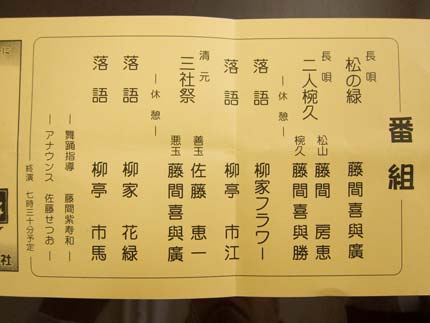 番組
長唄
松の緑 藤間喜與廣
長唄
二人椀久 松山 藤間房恵
椀久 藤間喜與勝
―休憩―
落語 柳家フラワー
落語 柳亭市江
清元
三社祭 善玉 佐藤恵一
悪玉 藤間喜與廣
―休憩―
落語 柳家花緑
落語 柳亭市馬
―舞踊指導 藤間紫寿和―
―アナウンス 佐藤せつお―
―終演 七時三十分予定―
社